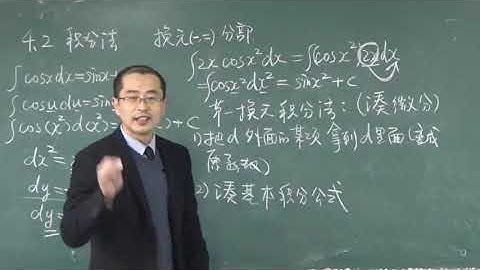 4.2 积分法 换元(一二)分部
∫cosxdx=sinx+
∫cosudu=sin
∫cos(x²)d(x²)= )+C
dx²=
dy=
dy=
∫2xcosx²dx=∫cosx²·2xdx
=∫cosx²dx²=sinx²+C
第一换元积分法:(凑微分)
1)把d外面的某项拿到d里面(变成
原函数)
2)凑基本积分公式